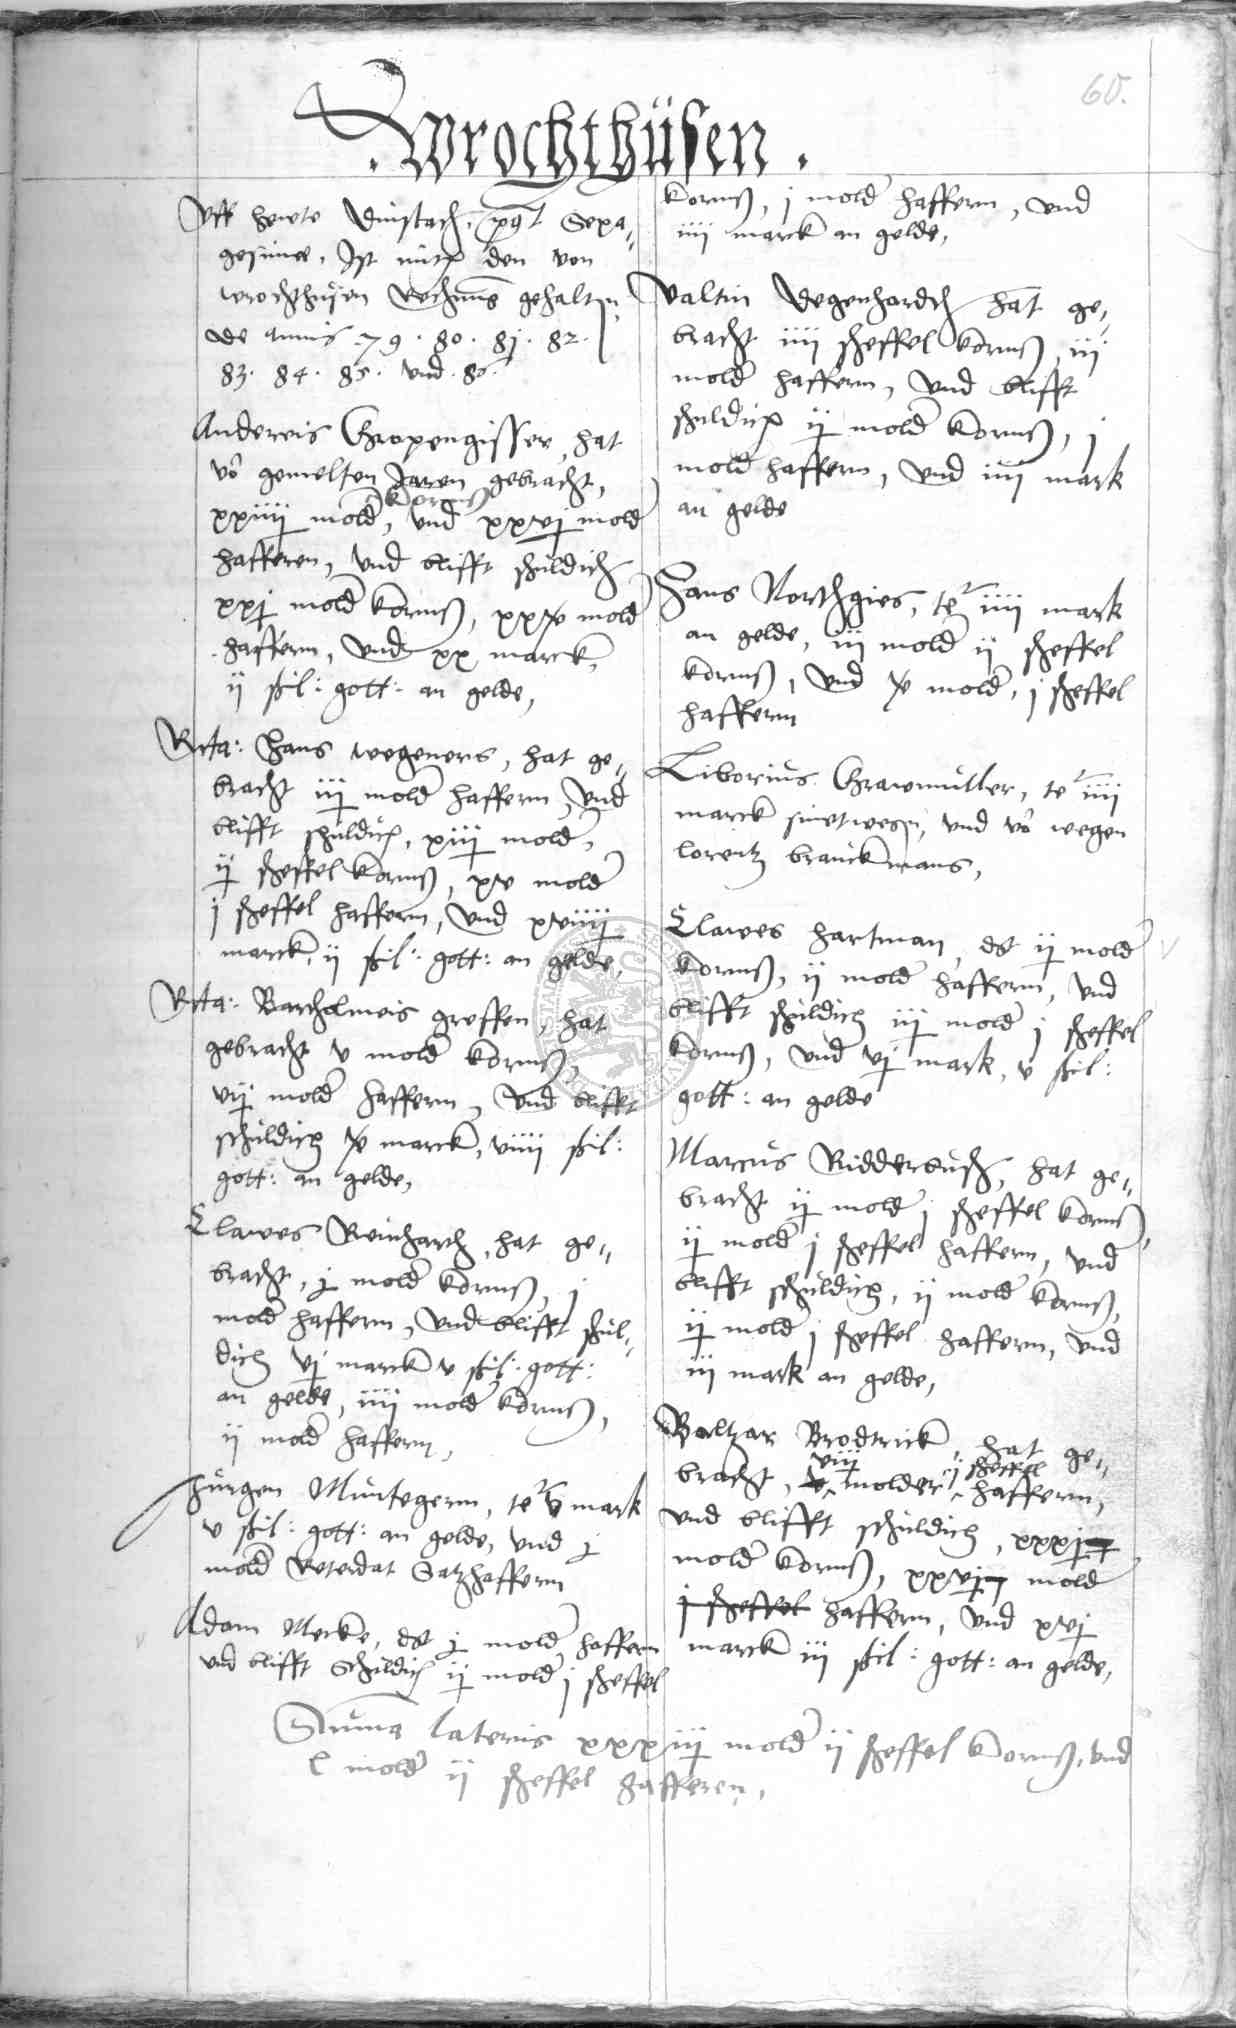 60.
. Wrochthüsen .
Uff hewte Dinstach, post Sexa-
gesime, Ist mitt den von
Wrochthusen Rechnung gehalten
de annis 79 . 80 . 81 . 82 .
83 . 84 . 85 . und . 86 .
Andereis Gropengisser, hat
vo gemelten Jaren gebracht,
xxiiij mold korns, und xxvj mold
hafferen, und blifft schuldich
xxj mold korns, xxx mold
hafferm, und xx marck,
ij schil: gott: an gelde,
Rcta: Hans Wegeners, hat ge-
bracht iij mold hafferm, und
blifft schuldich, xiij mold,
ij scheffel korns, xv mold
j scheffel hafferm, und xviiij
marck, ij schil: gott: an gelde,
Rcta: Bartholmeis greffen, hat
gebracht v mold korns,
vij mold hafferm, und blifft
schuldich x marck, viiij schil:
gott: an gelde,
Clawes Reinharth, hat ge-
bracht, j mold korns, j
mold hafferm, und blifft schul-
dich vj marck v schil: gott:
an gelde, iiij mold korns,
ij mold hafferm,
Jurgen Müntegerm, te v mark
v schil: gott: an gelde, und j
mold Sathafferm
Adam Mecke, dt j mold hafferm
und blifft Schuldich ij mold j scheffel
korns, j mold hafferm, und
iiij marck an gelde,
Valtin Degenhardth hat ge-
bracht iiij scheffel korns, iij
mold hafferm, und blifft
schuldich ij mold korns, j
mold hafferm, und iiij mark
an gelde
Hans Northgies, te iiij mark
an gelde, iij mold ij scheffel
korns, und x mold, j scheffel
hafferm
Liborius Grawmüller, te iiij
marck sinetwegen, und vo wegen
lorentz branckmans,
Clawes Hartman, dt ij mold
korns, ij mold hafferm, und
blifft schuldich iij mold j scheffel
korns, und vj mark, v schil:
gott: an gelde
Marcus Ridderbusch, hat ge-
bracht ij mold j scheffel korns,
ij mold j scheffel hafferm, und
blifft schuldich, ij mold korns,
ij mold j scheffel hafferm, und
iij mark an gelde,
Baltzar Brodtrick, hat ge-
bracht, viij molder ij scheffel hafferm,
und blifft schuldich, xxxj
mold korns, xxvj mold
j scheffel hafferm, und xvj
marck iij schil: gott: an gelde,
Suma lateris xxxiij mold ij scheffel korns, und
l mold ij scheffel hafferen,